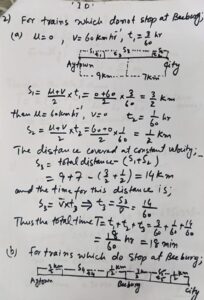 2) For trains which do not stop at Beeburg;
(a) u=0, v=60kmhr⁻¹, t₁=3/60 hr
S₁ S₃ S₂
Aytown City
9km 7km
S₁ = (u+v)/2 x t₁ = (0+60)/2 x 3/60 = 3/2 km
then u=60kmhr⁻¹, v=0 t₂=1/60 hr
S₂ = (u+v)/2 x t₂ = (60+0)/2 x 1/60 = 1/2 km
The distance covered at constant velocity;
S₃ = total distance - (S₁+S₂)
= 9+7 - (3/2+1/2) = 14km
and the time for this distance is;
S₃ = v x t₃ ⇒ t₃ = S₃/v = 14/60
Thus the total time T = t₁+t₂+t₃ = 3/60+1/60+14/60
= 18/60 hr = 18 min
(b) For trains which do stop at Beeburg;
Aytown Beeburg City